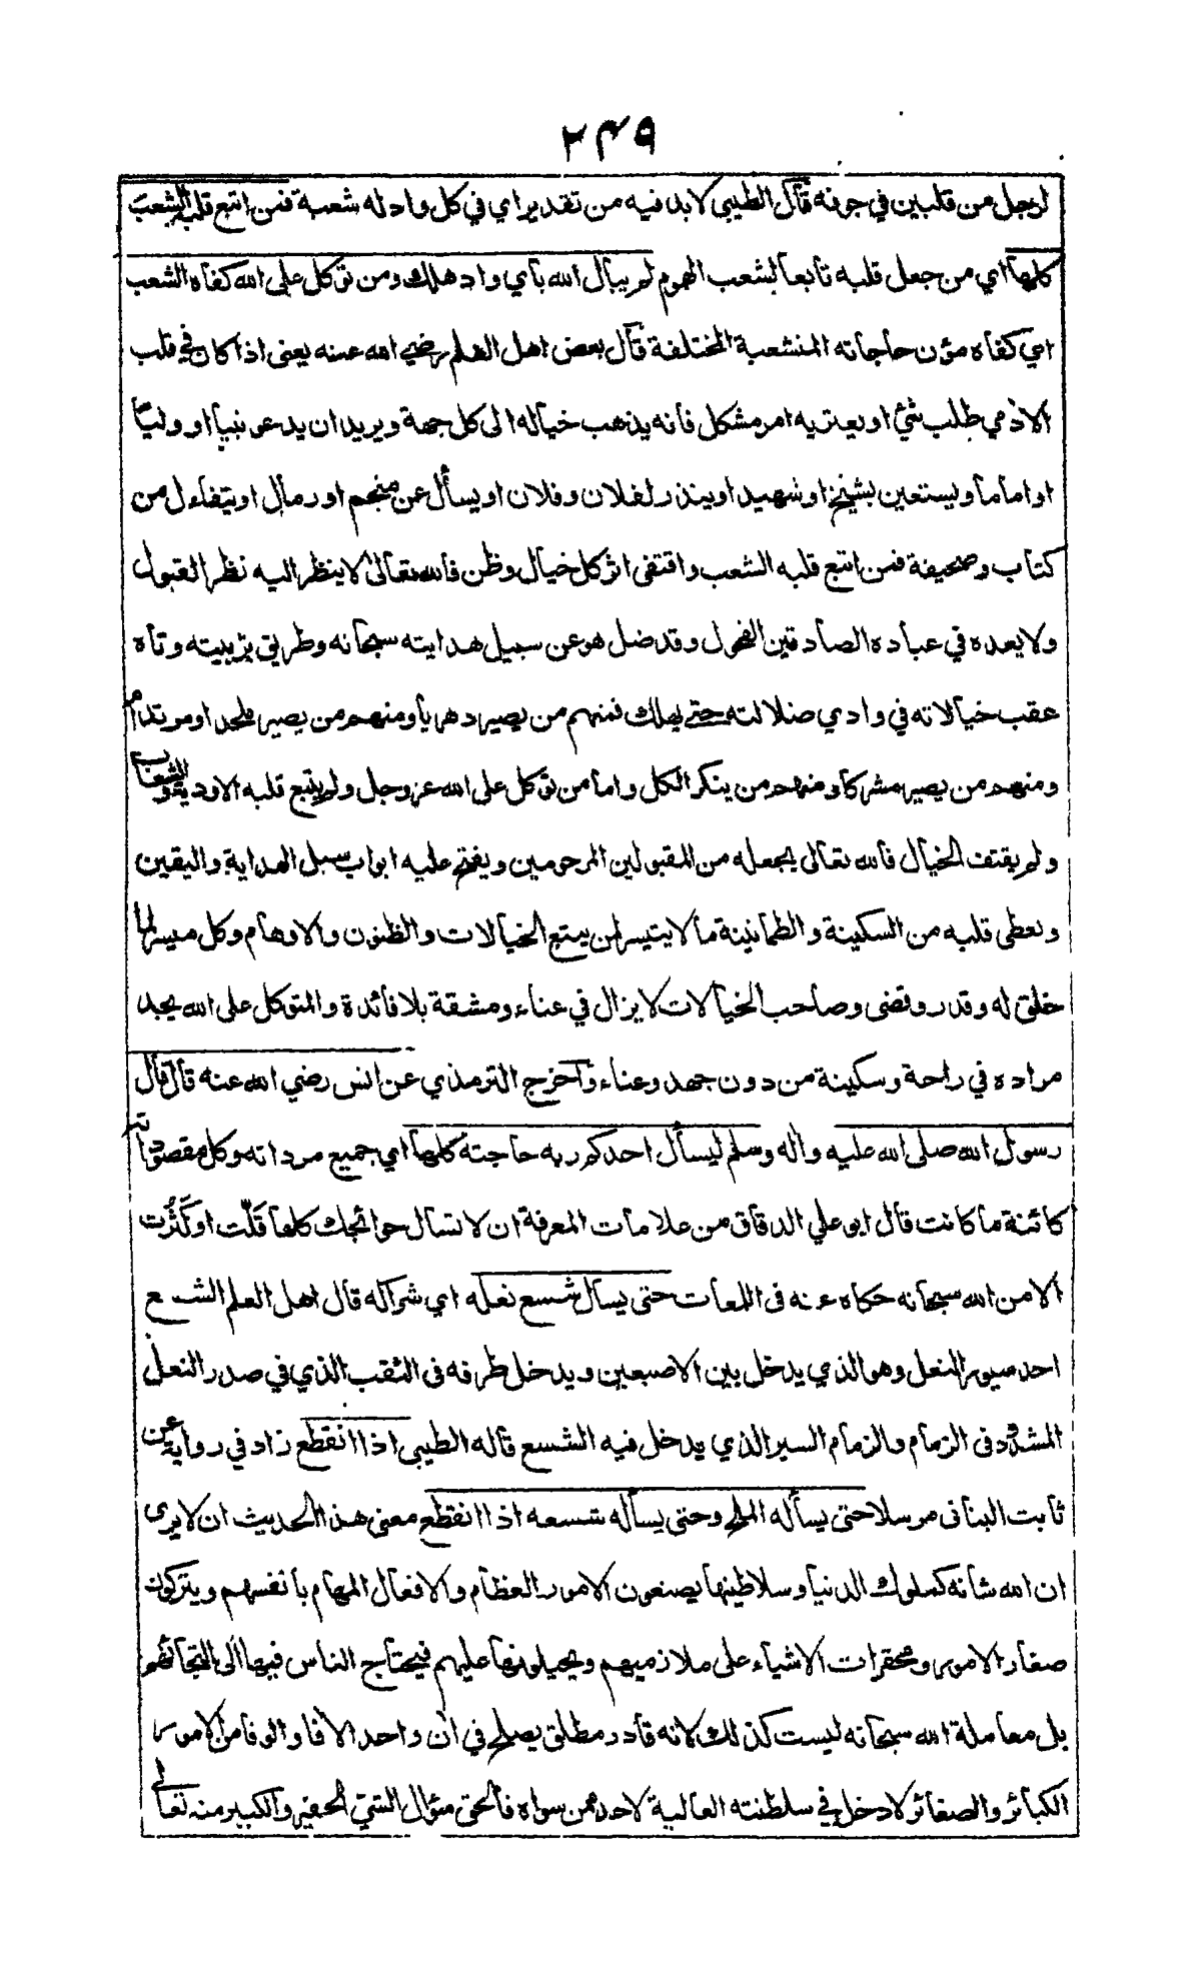 ٢٤٩
لرجل من قلبين في جوفه قال الطيبي لا بد فيه من تقدير اي في كل واد له شعبة فمن اتبع قلبه الشعب
كلها اي من جعل قلبه تابعا لشعب الهموم لم يبال الله باي واد هلك ومن توكل على الله كفاه الشعب
اي كفاه مؤن حاجاته المنشعبة المختلفة قال بعض اهل العلم رضي الله عنه يعنى اذا كان في قلب
الادمي طلب شئ او يعتريه امر مشكل فانه يذهب خياله الى كل جهة ويريد ان يدعو نبيا او وليا
او اماما ويستعين بشيخ او شهيد او ينذر لفلان وفلان او يسأل عن منجم او رمال او يتفاءل من
كتاب وصحيفة فمن اتبع قلبه الشعب واقتفى اثر كل خيال وظن فالله تعالى لا ينظر اليه نظر القبول
ولا يعده في عباده الصادقين الفحول وقد ضل هو عن سبيل هدايته سبحانه وطريق تربيته وتاه
عقب خيالاته في وادي ضلالته حتى يهلك فمنهم من يصير دهريا ومنهم من يصير ملحدا او مرتدا
ومنهم من يصير مشركا ومنهم من ينكر الكل واما من توكل على الله عز وجل ولم يتبع قلبه الاودية والشعاب
ولم يقتف الخيال فالله تعالى يجعله من المقبولين المرحومين ويفتح عليه ابواب سبل الهداية واليقين
ويعطى قلبه من السكينة والطمانينة ما لا يتيسر لمن يتبع الخيالات والظنون والاوهام وكل ميسر لما
خلق له وقدر وقضى وصاحب الخيالات لا يزال في عناء ومشقة بلا فائدة والمتوكل على الله يجد
مراده في راحة وسكينة من دون جهد وعناء واخرج الترمذي عن انس رضي الله عنه قال قال
رسول الله صلى الله عليه واله وسلم ليسأل احدكم ربه حاجته كلها اي جميع مراداته وكل مقصوداته
كائنة ما كانت قال ابو علي الدقاق من علامات المعرفة ان لا تسال حوائجك كلها قَلّت او كَثُرت
الا من الله سبحانه حكاه عنه فى اللمعات حتى يسأل شسع نعله اي شراكه قال اهل العلم الشسع
احد سيور النعل وهو الذي يدخل بين الاصبعين ويدخل طرفه فى الثقب الذي في صدر النعل
المشدود فى الزمام والزمام السير الذي يدخل فيه الشسع قاله الطيبي اذا انقطع زاد في رواية عن
ثابت البنانى مرسلا حتى يسأله الملح وحتى يسأله شسعه اذا انقطع معنى هذا الحديث ان لا يرى
ان الله شانه كملوك الدنيا وسلاطينها يصنعون الامور العظام والافعال المهام بانفسهم ويتركون
صغار الامور ومحقرات الاشياء على ملازميهم ويحيلونها عليهم فيحتاج الناس فيها الى التجائهم
بل معاملة الله سبحانه ليست كذلك لانه قادر مطلق يصلح في ان واحد الافا والوفا من الامور
الكبائر والصغائر لا دخل في سلطنته العالية لاحد ممن سواه فالحق سؤال الشئ الحقير والكبير منه تعالى